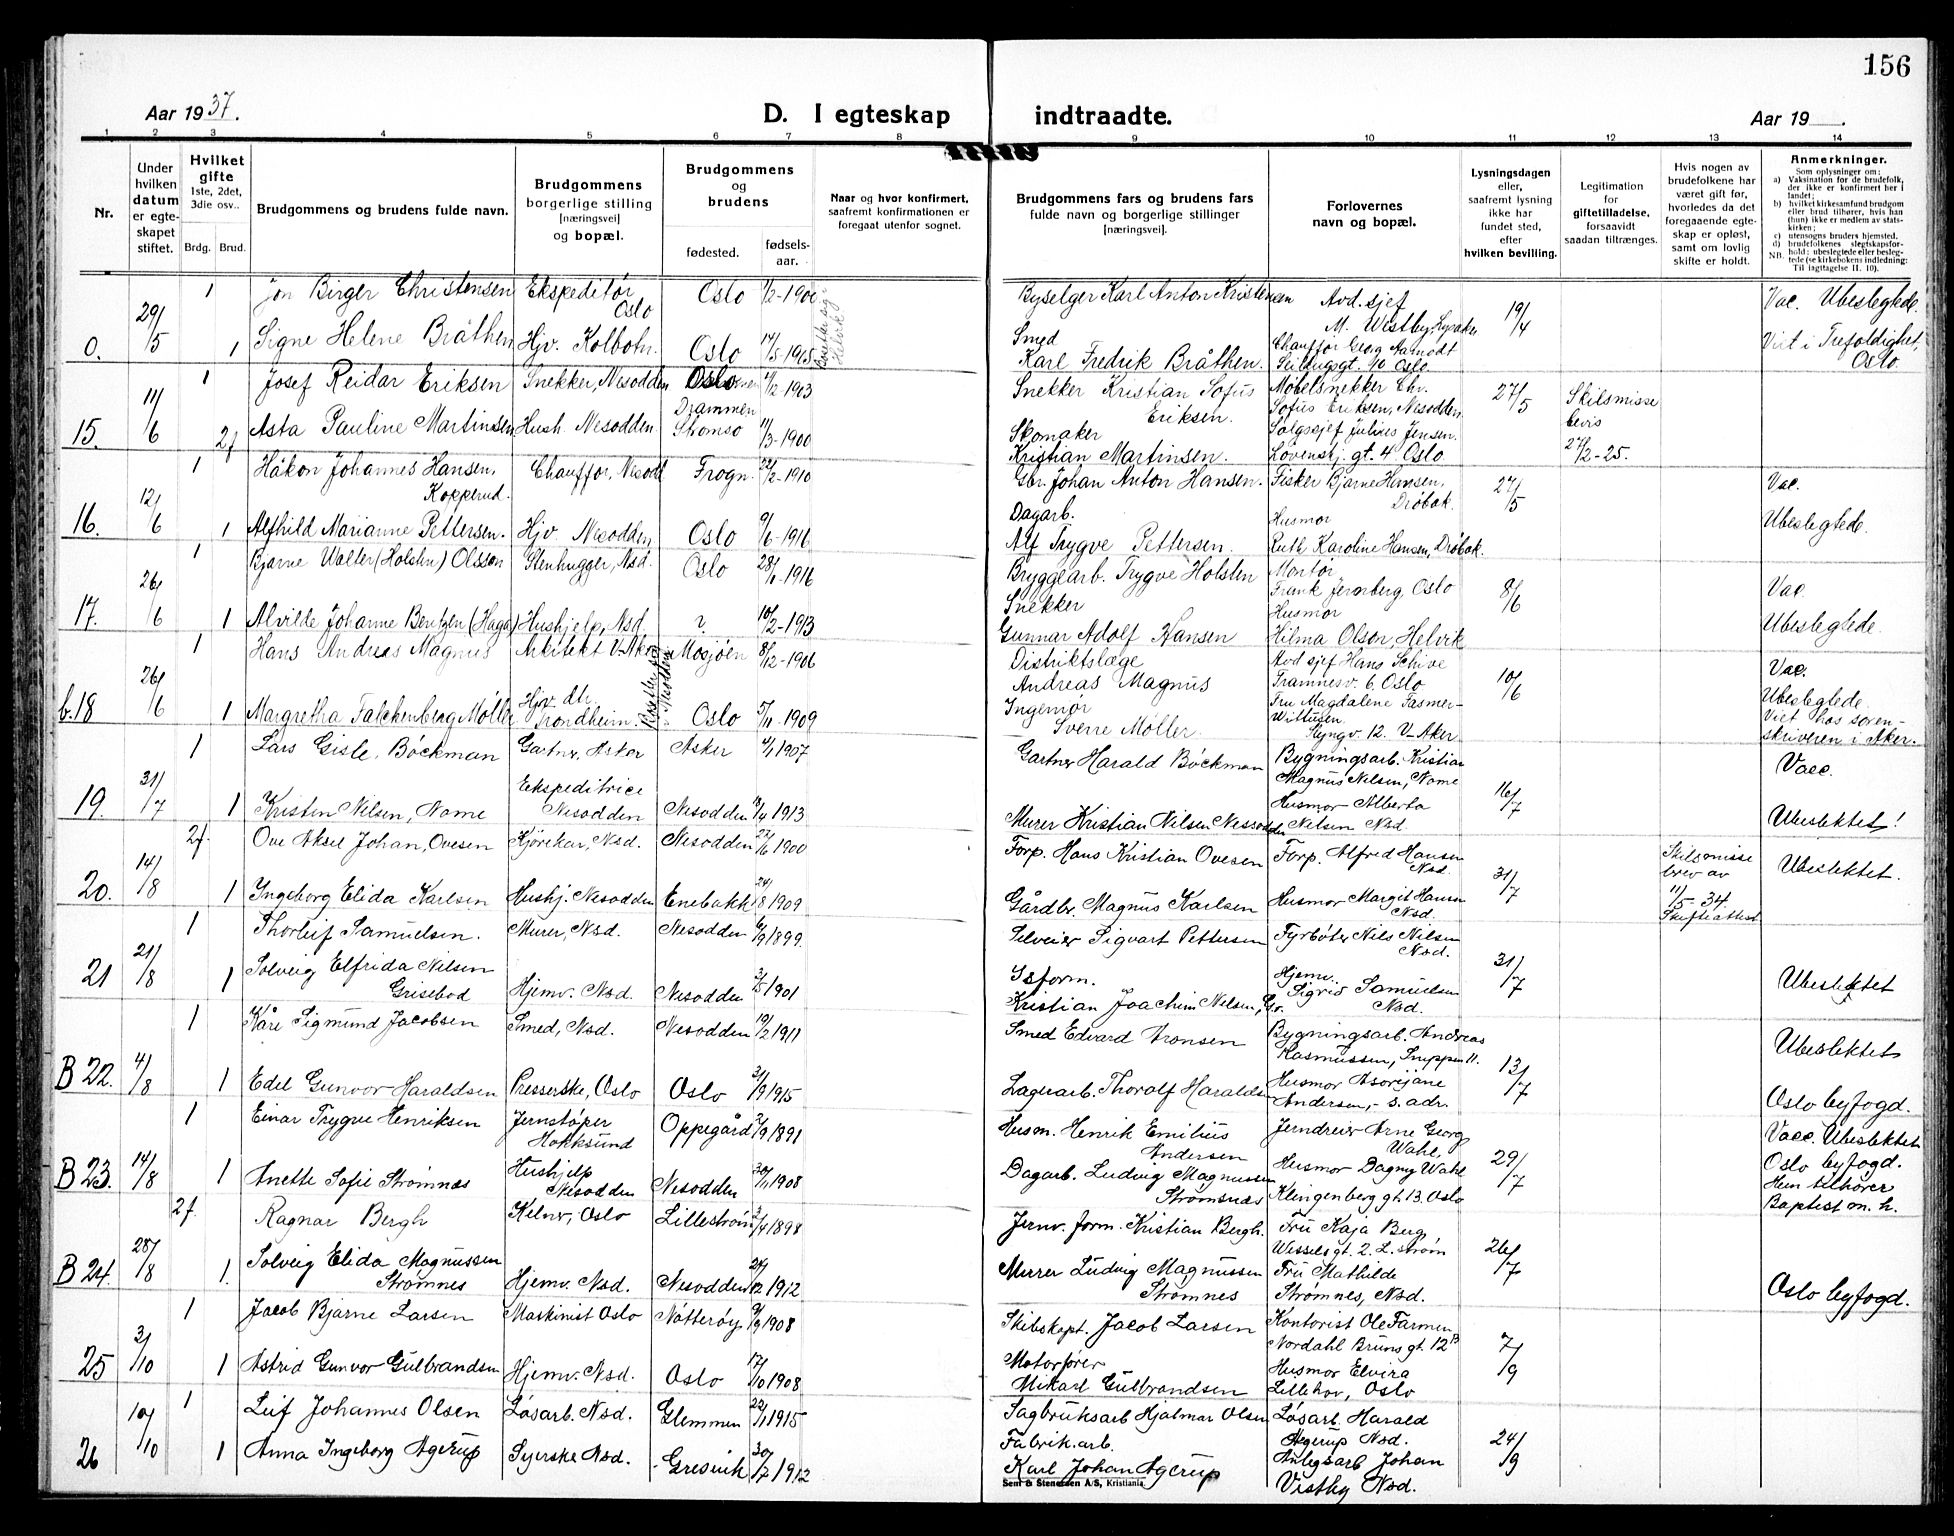 156
Aar 1937.
D. I egteskap indtraadte.
Aar 19   .
1 2 3 4 5 6 7 8 9 10 11 12 13 14
Nr.
Under hvilken datum er egteskapet stiftet.
Hvilket gifte
1ste, 2det, 3die osv..
Brdg. Brud.
Brudgommens og brudens fulde navn.
Brudgommens
borgerlige stilling
[næringsvei]
og bopæl.
Brudgommens
og
brudens
fødested.
fødsels-
aar.
Naar og hvor konfirmert,
saafremt konfirmationen er
foregaat utenfor sognet.
Brudgommens fars og brudens fars
fulde navn og borgerlige stillinger
[næringsvei].
Forlovernes
navn og bopæl.
Lysningsdagen
eller,
saafremt lysning
ikke har
fundet sted,
efter
hvilken bevilling.
Legitimation
for
giftetilladelse,
forsaavidt
saadan tiltrænges.
Hvis nogen av
brudefolkene har
været gift før,
hvorledes da det
foregaaende egte-
skap er opløst,
samt om lovlig
skifte er holdt.
Anmerkninger.
Som oplysning om:
a) Vaksination for de brudefolk,
der ikke er konfirmert her i
landet;
b) hvilket kirkesamfund brudgom
eller brud tilhører, hvis han
(hun) ikke er medlem av stats-
kirken;
c) utensogns bruders hjemsted.
d) brudefolkenes slegtskapsfor-
hold: ubeslegtede eller besleg-
NB. tede (se kirkebokens indledning:
Til iagttagelse II. 10).
0. 29/5 1 Jon Birger Christensen Ekspeditør Oslo Oslo 1/2-1900 Byselger Karl Anton Kristensen Avd. sjef M. Westby, Lysaker 19/4 Vac. Ubeslegtede.
1 Signe Helene Bråthen Hjv. Kolbotn. Oslo 14/5-1915 Smed Karl Fredrik Bråthen. Chauffør Georg Aamodt Oslo. Viet i Trefoldighet, Oslo.
15. 11/6 1 Josef Reidar Eriksen Snekker, Nesodden 4/2 1903 Snekker Kristian Sofus Eriksen. Møbelsnekker Chr. Sofus Eriksen, Nesodden. 27/5 Skilsmisse bevis 27/2-25.
2f Asta Pauline Martinsen Hush. Nesodden. Drammen Strømsø 11/3-1900 Skomaker Kristian Martinsen. Salgssjef Julius Jensen. Løvenskj. gt. 4 Oslo.
16. 12/6 1 Håkon Johannes Hansen, Kopperud. Chauffør, Nesodd Frogn. 22/2-1910 Gbr. Johan Anton Hansen. Fisker Bjarne Hansen, Drøbak. 27/5 Vac.
1 Alfhild Marianne Pettersen. Hjv. Nesodden, Oslo 9/6-1916 Dagarb. Alf Trygve Pettersen. Husmor Ruth Karoline Hansen, Drøbak. Ubeslegtede.
17. 26/6 1 Bjarne Walter (Holsten) Olsson Stenhugger, Nsd. Oslo 28/1-1916 Bryggearb. Trygve Holsten Frank Jernberg, Oslo 8/6 Vac.
1 Alvilde Johanne Bentzen (Haga) Hushjelp, Nsd. ? 10/2-1913 Snekker Gunnar Adolf Hansen Husmor Hilma Olson, Helvik Ubeslegtede.
b.18 26/6 1 Hans Andreas Magnus Arkitekt V-Aker Mosjøen 8/12-1906 Distriktslæge Andreas Magnus Avd sjef Hans Schive Framnesv. 6. Oslo 10/6 Vac.
1 Margretha Falckenberg Møller Hjv. dtr Trondheim. Oslo 5/11-1909 Ingeniør Sverre Møller. Fru Magdalene Fasmer- Wiltusen Lyngv. 12. V-Aker Ubeslegtede. Viet hos soren- skriveren i Aker.
19. 31/7 1 Lars Gisle, Böckman Gartner, Asker Asker 4/1 1907 Gartner Harald Böckman Bygningsarb. Kristian Magnus Nilsen, Nome 16/7 Vacc.
1 Kristen Nilsen, Nome Ekspeditrice Nesodden Nesodden 13/4 1913 Murer Kristian Nilsen Nesodden Husmor Alberta Nilsen Nsd. Ubeslektet!
20. 14/8 2f. Ove Aksel Johan, Ovesen Kjørekar, Nsd. Nesodden 22/6 1900 Forp. Hans Kristian Ovesen Forp. Alfred Hansen Nsd. 31/7 Skilsmisse brev av 11/5-34. Skifteattest Ubeslektet.
1 Ingeborg Elida Karlsen Hushj. Nesodden Enebakk 24/8 1909 Gårdbr. Magnus Karlsen Husmor Margit Hansen Nsd.
21 21/8 1 Thorleif Samuelsen. Murer, Nsd. Nesodden 6/9 1899. Selveier Sigvart Pettersen Fyrbøter Nils Nilsen Nsd. 31/7 Ubeslektet
1 Solveig Elfrida Nilsen Grisebod Hjemv. Nsd. Nesodden 3/5 1901 Isform. Kristian Joachim Nilsen, Hjemv. Sigrid Samuelsen Nsd.
B 22. 4/8 1 Kåre Sigmund Jacobsen Smed, Nsd. Nesodden 19/2 1911 Smed Edvard Aronsen Bygningsarb. Andreas Rasmussen, 13/7 Ubeslektet
1 Edel Gunvor Haraldsen Presserske, Oslo Oslo 31/9 1915 Lagerarb. Thoralf Haraldsen Husmor Andersen, - s. adr. Oslo byfogd.
B 23. 14/8 1 Einar Trygve Henriksen Jernstøper Hokksund Oppegård 2/9 1891 Husm. Henrik Emilius Andersen Jerndreier Arne Georg Wahl, 29/7 Vacc. Ubeslektet
1 Anette Sofie Strømnes Hushjelp Nesodden Nesodden 30/11 1908 Dagarb. Ludvig Magnussen Strømsnæs Husmor Dagny Wahl Klingenberg gt. 13. Oslo Oslo byfogd. Hun tilhører Baptist m. h.
B 24. 28/8 2f. Ragnar Bergh Kelner, Oslo Lillestrøm 3/4 1898 Jernv. form. Kristian Bergh. Fru Kaja Berg Wessels gt. 2. L.strøm 26/7
1. Solveig Elida Magnussen Strømnes Hjemv. Nsd. Nesodden 24/12 1912 Murer Ludvig Magnussen Strømnes Fru Mathilde Strømnes, Nsd. Oslo byfogd.
25 3/10 1 Jacob Bjarne Larsen Maskinist Oslo Nøtterøy 9/9 1908 Skibskapt. Jacob Larsen Kontorist Ole Farmen Nordahl Bruns gt. 12 B 7/9
1 Astrid Gunvor Gulbrandsen Hjemv. Nsd. Oslo 17/10 1908 Motorfører Mikael Gulbrandsen Husmor Elvira Lillehov, Oslo
26 10/10 1 Leif Johannes Olsen Løsarb. Nsd. Glemmen 22/11 1915 Sagbruksarb Hjalmar Olsen Løsarb. Harald Agerup Nsd. 24/9
1 Anna Ingeborg Agerup Syerske Nsd. Gresvik 30/7 1912 Fabrik.arb. Karl Johan Agerup Anlegsarb Johan Vestby Nsd.
Sem & Stenersen A/S, Kristiania